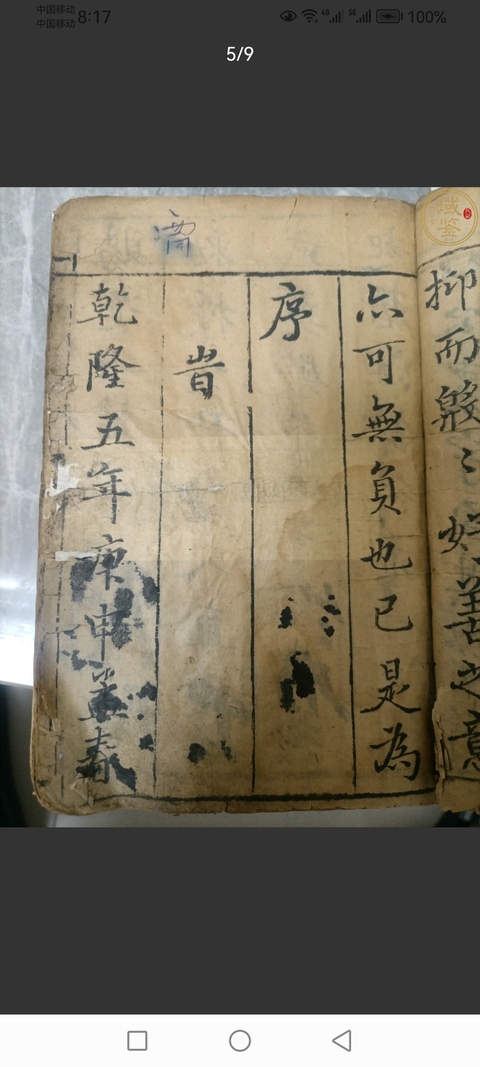 中国移动
中国移动
8:17
4G 5G 100%
5/9
抑而 好善之意
亦可無負也已是為
序
旹
乾隆五年庚申孟春